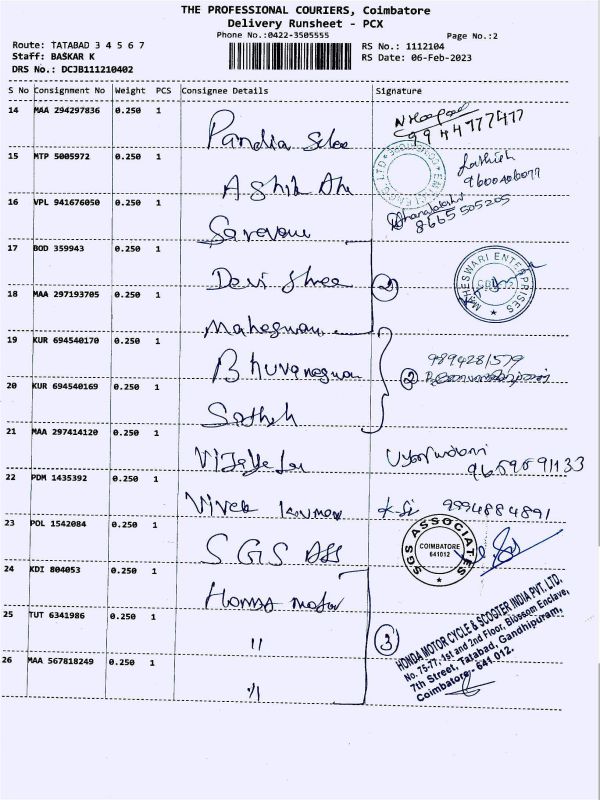 THE PROFESSIONAL COURIERS, Coimbatore
Delivery Runsheet - PCX
Phone No.:0422-3505555
Page No.:2
Route: TATABAD 3 4 5 6 7
RS No.: 1112104
Staff: BASKAR K
RS Date: 06-Feb-2023
DRS No.: DCJB111210402
S No Consignment No Weight PCS Consignee Details Signature
14 MAA 294297836 0.250 1 Pandia
9944777477
15 MTP 5005972 0.250 1 Ashik
Sathish
9600406077
16 VPL 941676050 0.250 1 Saravana
Dhanalakshmi
8665505205
17 BOD 359943 0.250 1 Devi Shree
2
MAHESWARI ENTERPRISES
18 MAA 297193705 0.250 1 Maheswari
19 KUR 694540170 0.250 1 Bhuvaneswari
9894281579
2
20 KUR 694540169 0.250 1 Sathish
21 MAA 297414120 0.250 1
9659591133
22 PDM 1435392 0.250 1 Vivek kumar
9994884891
23 POL 1542084 0.250 1 SGS Ass
SGS ASSOCIATES
COIMBATORE
641012
24 KDI 804053 0.250 1 Honda motor
25 TUT 6341986 0.250 1 "
3
HONDA MOTOR CYCLE & SCOOTER INDIA PVT. LTD.
No. 75-77, 1st and 2nd Floor, Blossom Enclave,
7th Street, Tatabad, Gandhipuram,
Coimbatore - 641 012.
26 MAA 567818249 0.250 1 "